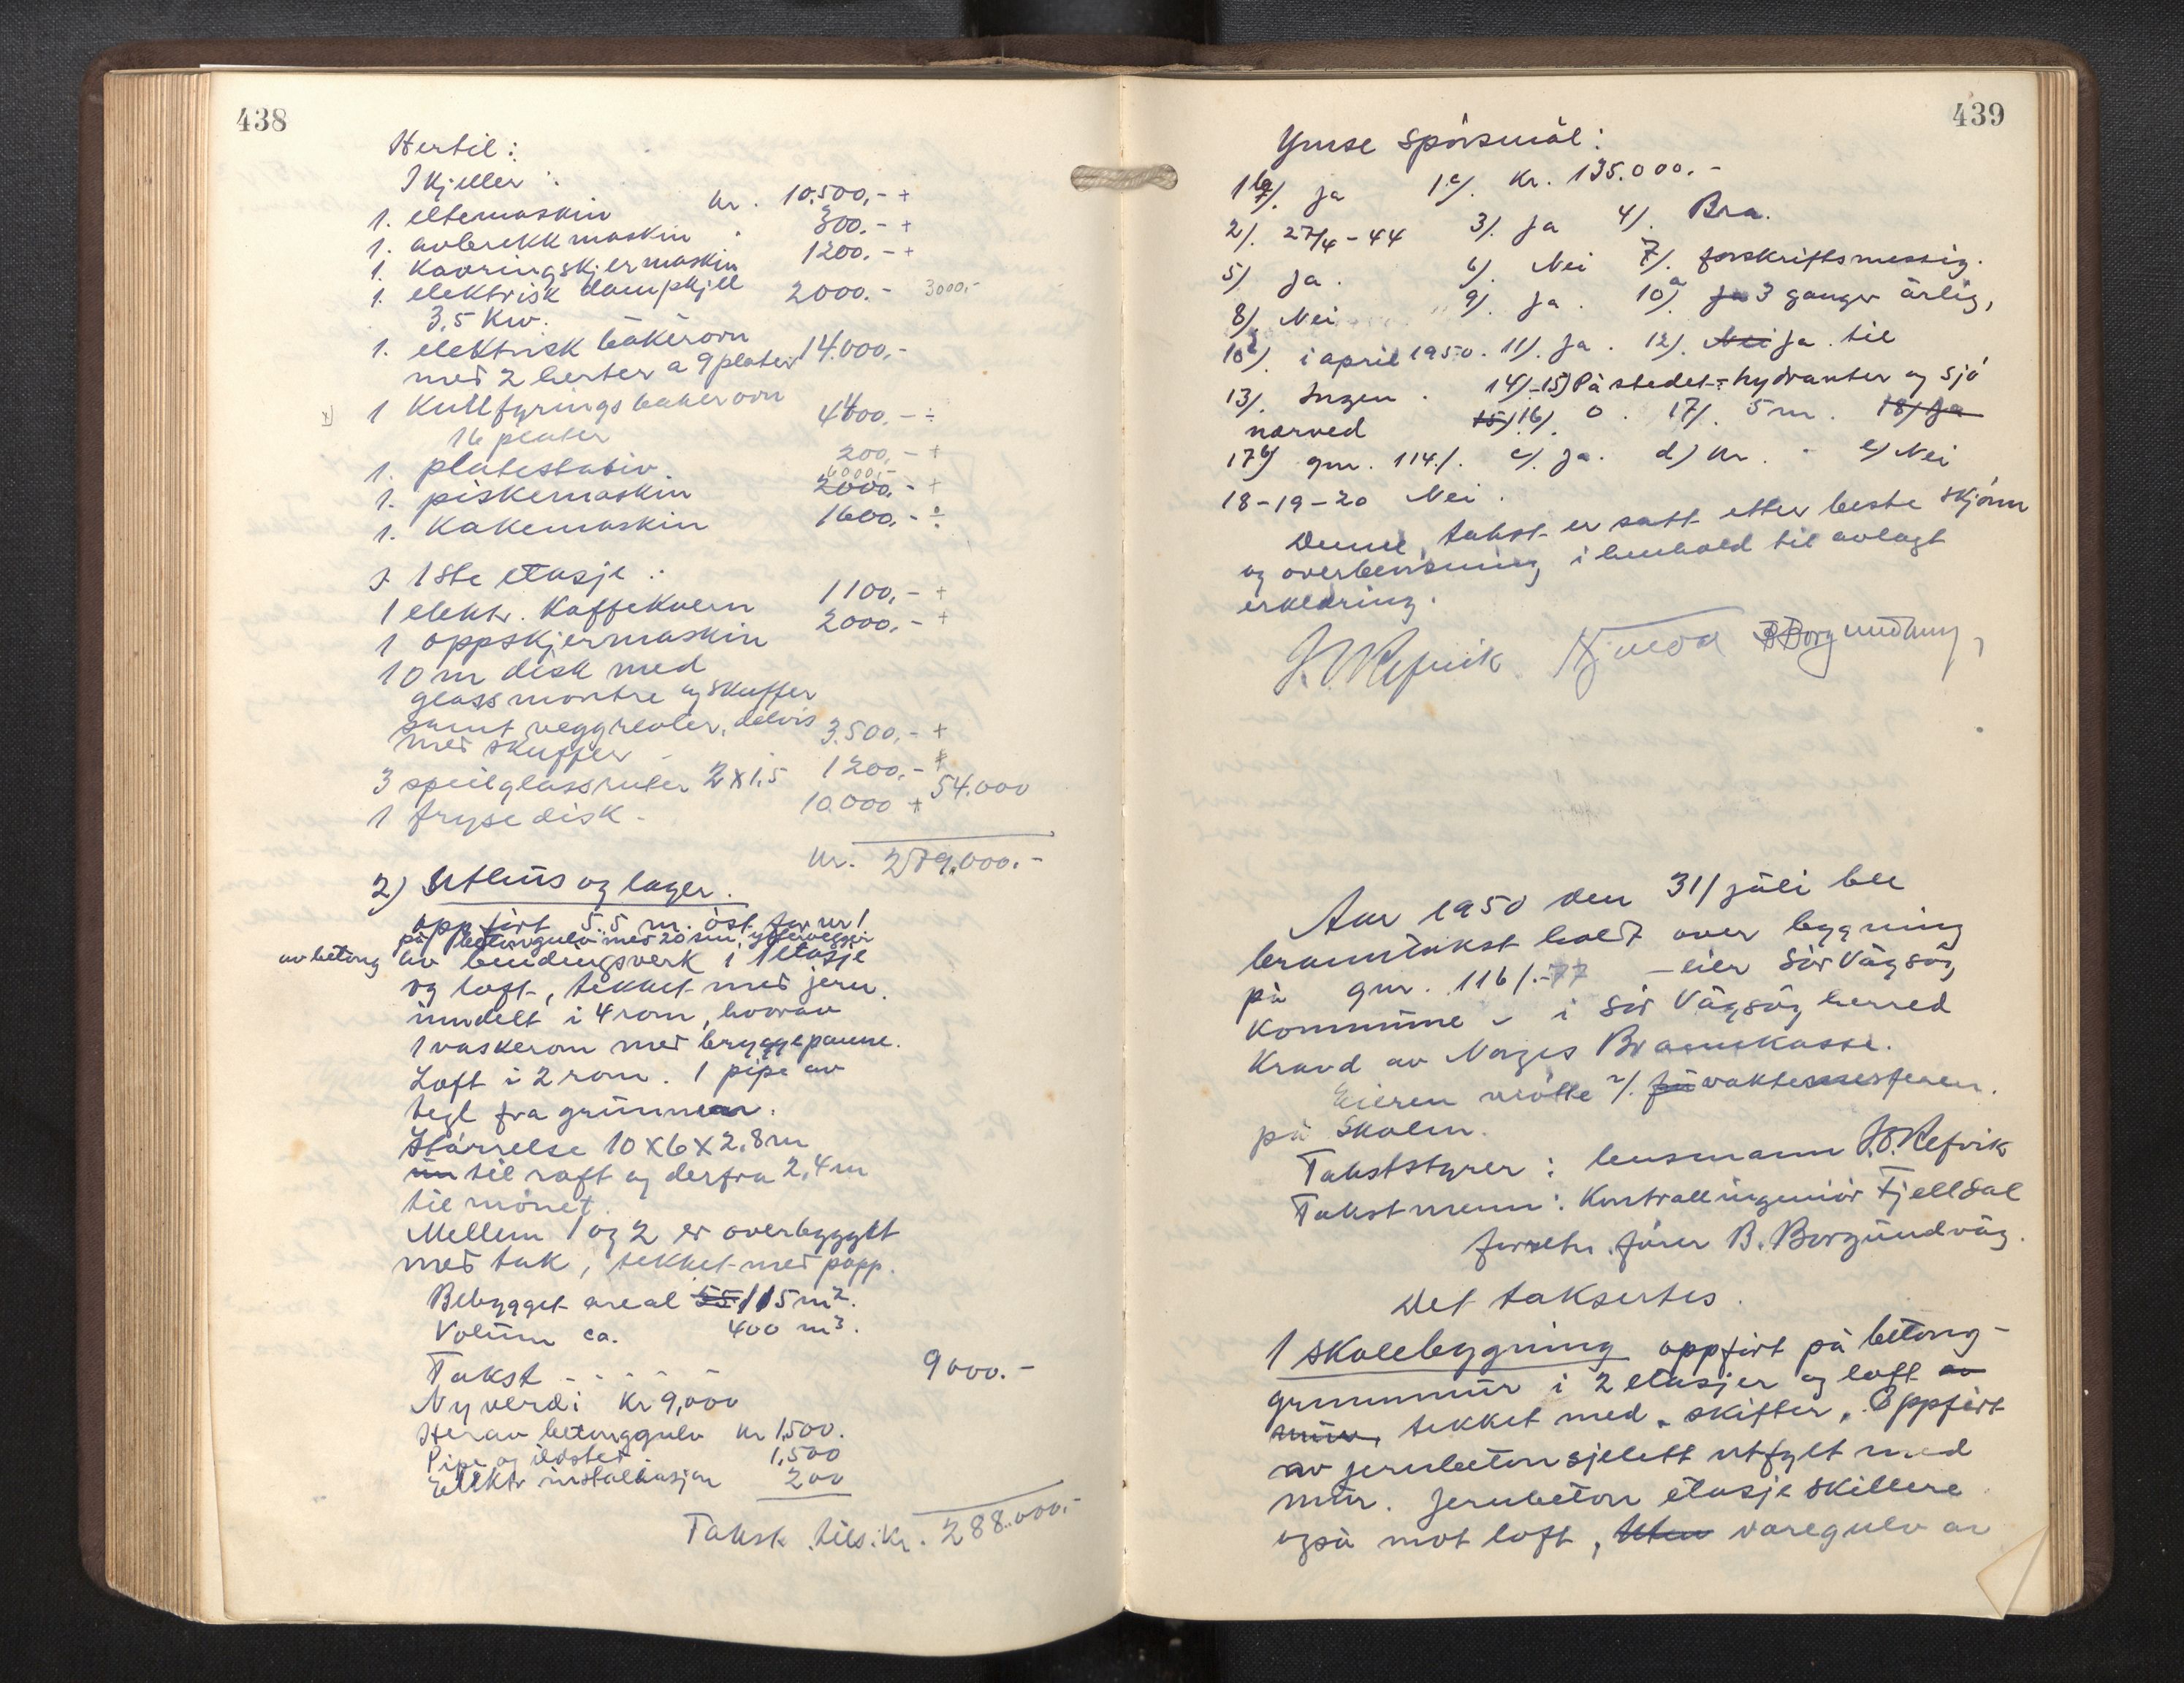 438
Hertil:
I Kjeller:
1. eltemaskin kr. 10.500,- +
1. avbrekkmaskin " 300.- +
1. Kavringskjermaskin 1200.- +
1. elektrisk dampkjell 2000.- 3000,-
3,5 Kw.
1. elektrisk bakerovn
med 2 herter a 9 plater 14.000,-
1 Kullfyringsbakerovn
16 plater 4400,- ÷
1. platestativ. 200,- +
6000,-
1. piskemaskin 2000,- +
1. Kakemaskin 1600,- ÷
I 1ste etasje:
1 elektr. Kaffekvern 1100,- +
1 oppskjermaskin 2000,- +
10 m disk med
glassmontre og skuffer
samt veggreoler, delvis
med skuffer - 3.500,- +
3 speilglassruter 2x1,5 1200,- +
1 frysedisk - 10.000 + 54.000
kr. 279.000.-
2) Uthus og lager.
oppført 5.5 m. øst for nr 1
på betonggulv med 20 cm, yttervegger
av betong av bindingsverk i 1 etasje
og loft, tekket med jern.
inndelt i 4 rom, hvorav
1 vaskerom med bryggepanne.
Loft i 2 rom. 1 pipe av
tegl fra grunnen.
Størrelse 10x6x2,8 m
til raft og derfra 2,4 m
til mønet.
Mellem 1 og 2 er overbyggt
med tak, tekket med papp.
Bebygget areal 55 115 m².
Volum ca. 400 m³.
Takst - - - - - 9000.-
Nyverdi kr 9,000
Herav betonggulv kr 1,500.
Pipe og ildsted 1,500
Elektr installasjon 200
Takst tils. kr. 288.000.-
439
Ymse spørsmål:
1b/. ja 1c/. Kr. 135.000.-
2/. 27/4-44 3/. ja 4/. Bra.
5/ ja. 6/. Nei 7/. forskriftsmessig.
8/. Nei 9/. ja. 10a/. ja 3 ganger årlig,
10b/. i april 1950. 11/. ja. 12/. Nei ja. til
13/. Ingen. 14/-15/ På stedet = hydranter og sjø
nærved 15/ 16/. 0. 17/. 5 m. 18/ ja
17b/ gnr. 114/. c/. ja. d) kr. - e/ Nei
18-19-20 Nei.
Denne takst er satt etter beste skjønn
og overbevisning i henhold til avlagt
erklæring.
Aar 1950 den 31/ juli ble
branntakst holdt over bygning
på gnr. 116/.-77 - eier Sør Vågsøy
Kommune - i Sør Vågsøy herred
Kravd av Norges Brannkasse.
Eieren møtte v/. på vaktmesteren.
på Skolen.
Takststyrer: lensmann J.O. Refvik
Takstmenn: Kontrollingeniør Fjelldal
forretn. fører B. Borgundvåg.
Det taksertes.
1 skolebygning oppført på betong-
grunnmur i 2 etasjer og loft av
mur, tekket med skifter. Oppført
av jernbetonsjelett utfylt med
mur. Jernbeton etasjeskillere
også mot loft, Uten varegulv av